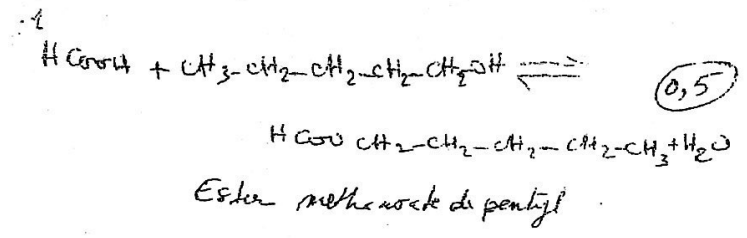 .1
HCOOH + CH3-CH2-CH2-CH2-CH2OH ⇌
0,5
HCOO CH2-CH2-CH2-CH2-CH3 + H2O
Ester methanoate de pentyl